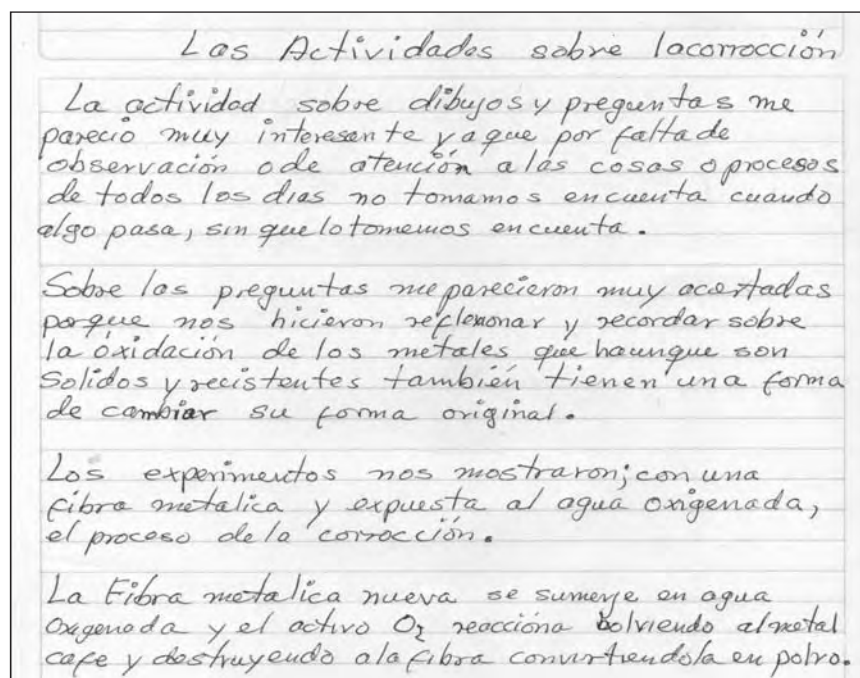 Las Actividades sobre lacorrocción
La actividad sobre dibujos y preguntas me
parecio muy interesante yaque por faltade
observación ode atención alas cosas oprocesos
de todos los dias no tomamos encuenta cuando
algo pasa, sin quelotomemos encuenta.
Sobre las preguntas meparecieron muy acertadas
porque nos hicieron reflexionar y recordar sobre
la óxidación de los metales que haunque son
Solidos y recistentes también tienen una forma
de cambiar su forma original.
Los experimentos nos mostraron; con una
fibra metalica y expuesta al agua oxigenada,
el proceso dela corrocción.
La Fibra metalica nueva se sumerje en agua
Oxigenada y el activo O₂ reacciona bolviendo almetal
cafe y destruyendo ala fibra convirtiendola en polvo.